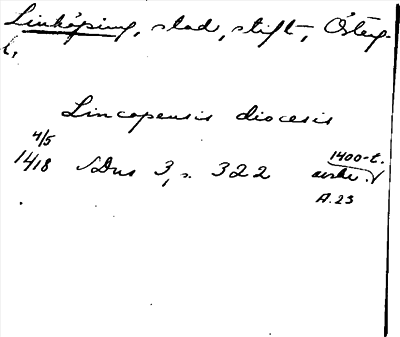 Linköping, stad, stift, Österg.
L,
Lincopensis diocesis
4/5
1418 SDns 3, s. 322
1400-t.
avskr.
A.23